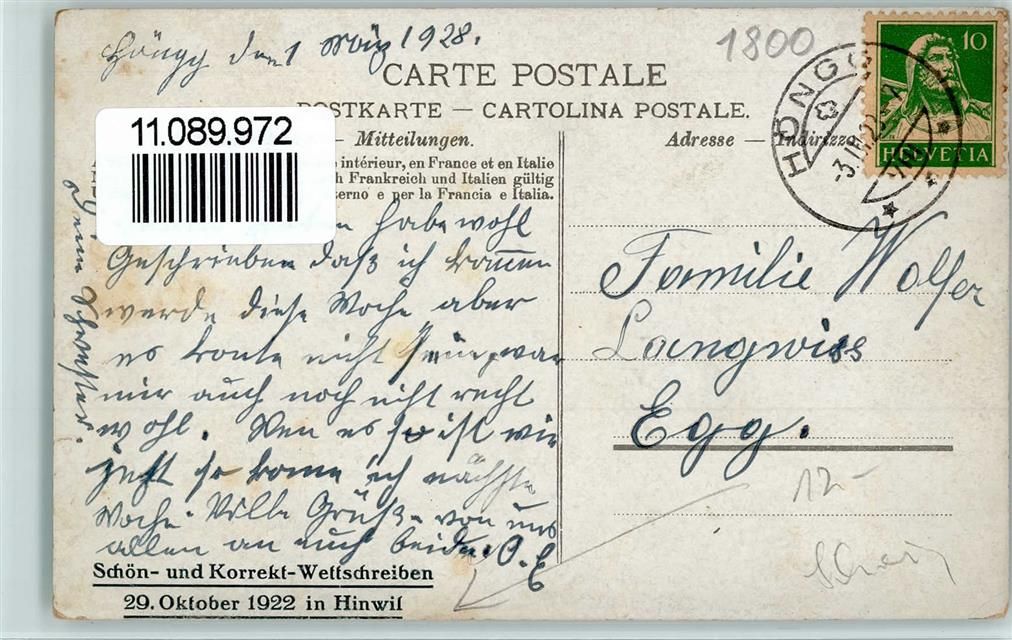 Höngg den 1 März 1928.
1800
CARTE POSTALE
POSTKARTE — CARTOLINA POSTALE.
11.089.972
— Mitteilungen.
Adresse — Indirizzo
intérieur, en France et en Italie
h Frankreich und Italien gültig
terno e per la Francia e Italia.
HÖNGG
3.III.28
10
HELVETIA
habe wohl
Geschrieben daß ich kommen
werde diese Woche aber
es konte nicht sein, war
mir auch noch nicht recht
wohl. Wen es so ist wie
jetzt so kome ich nächste
Woche. Viele Grüße von uns
allen an euch beide. O. E
Deine Schwester.
Familie Wolfer
Langwiss
Egg.
12.-
Schön- und Korrekt-Wettschreiben
29. Oktober 1922 in Hinwil